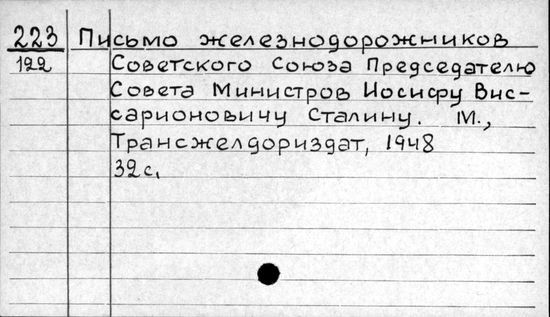 223 Письмо железнодорожников
122 Советского Союза Председателю
Совета Министров Иосифу Вис-
сарионовичу Сталину. М.,
Трансжелдориздат, 1948
32 с.